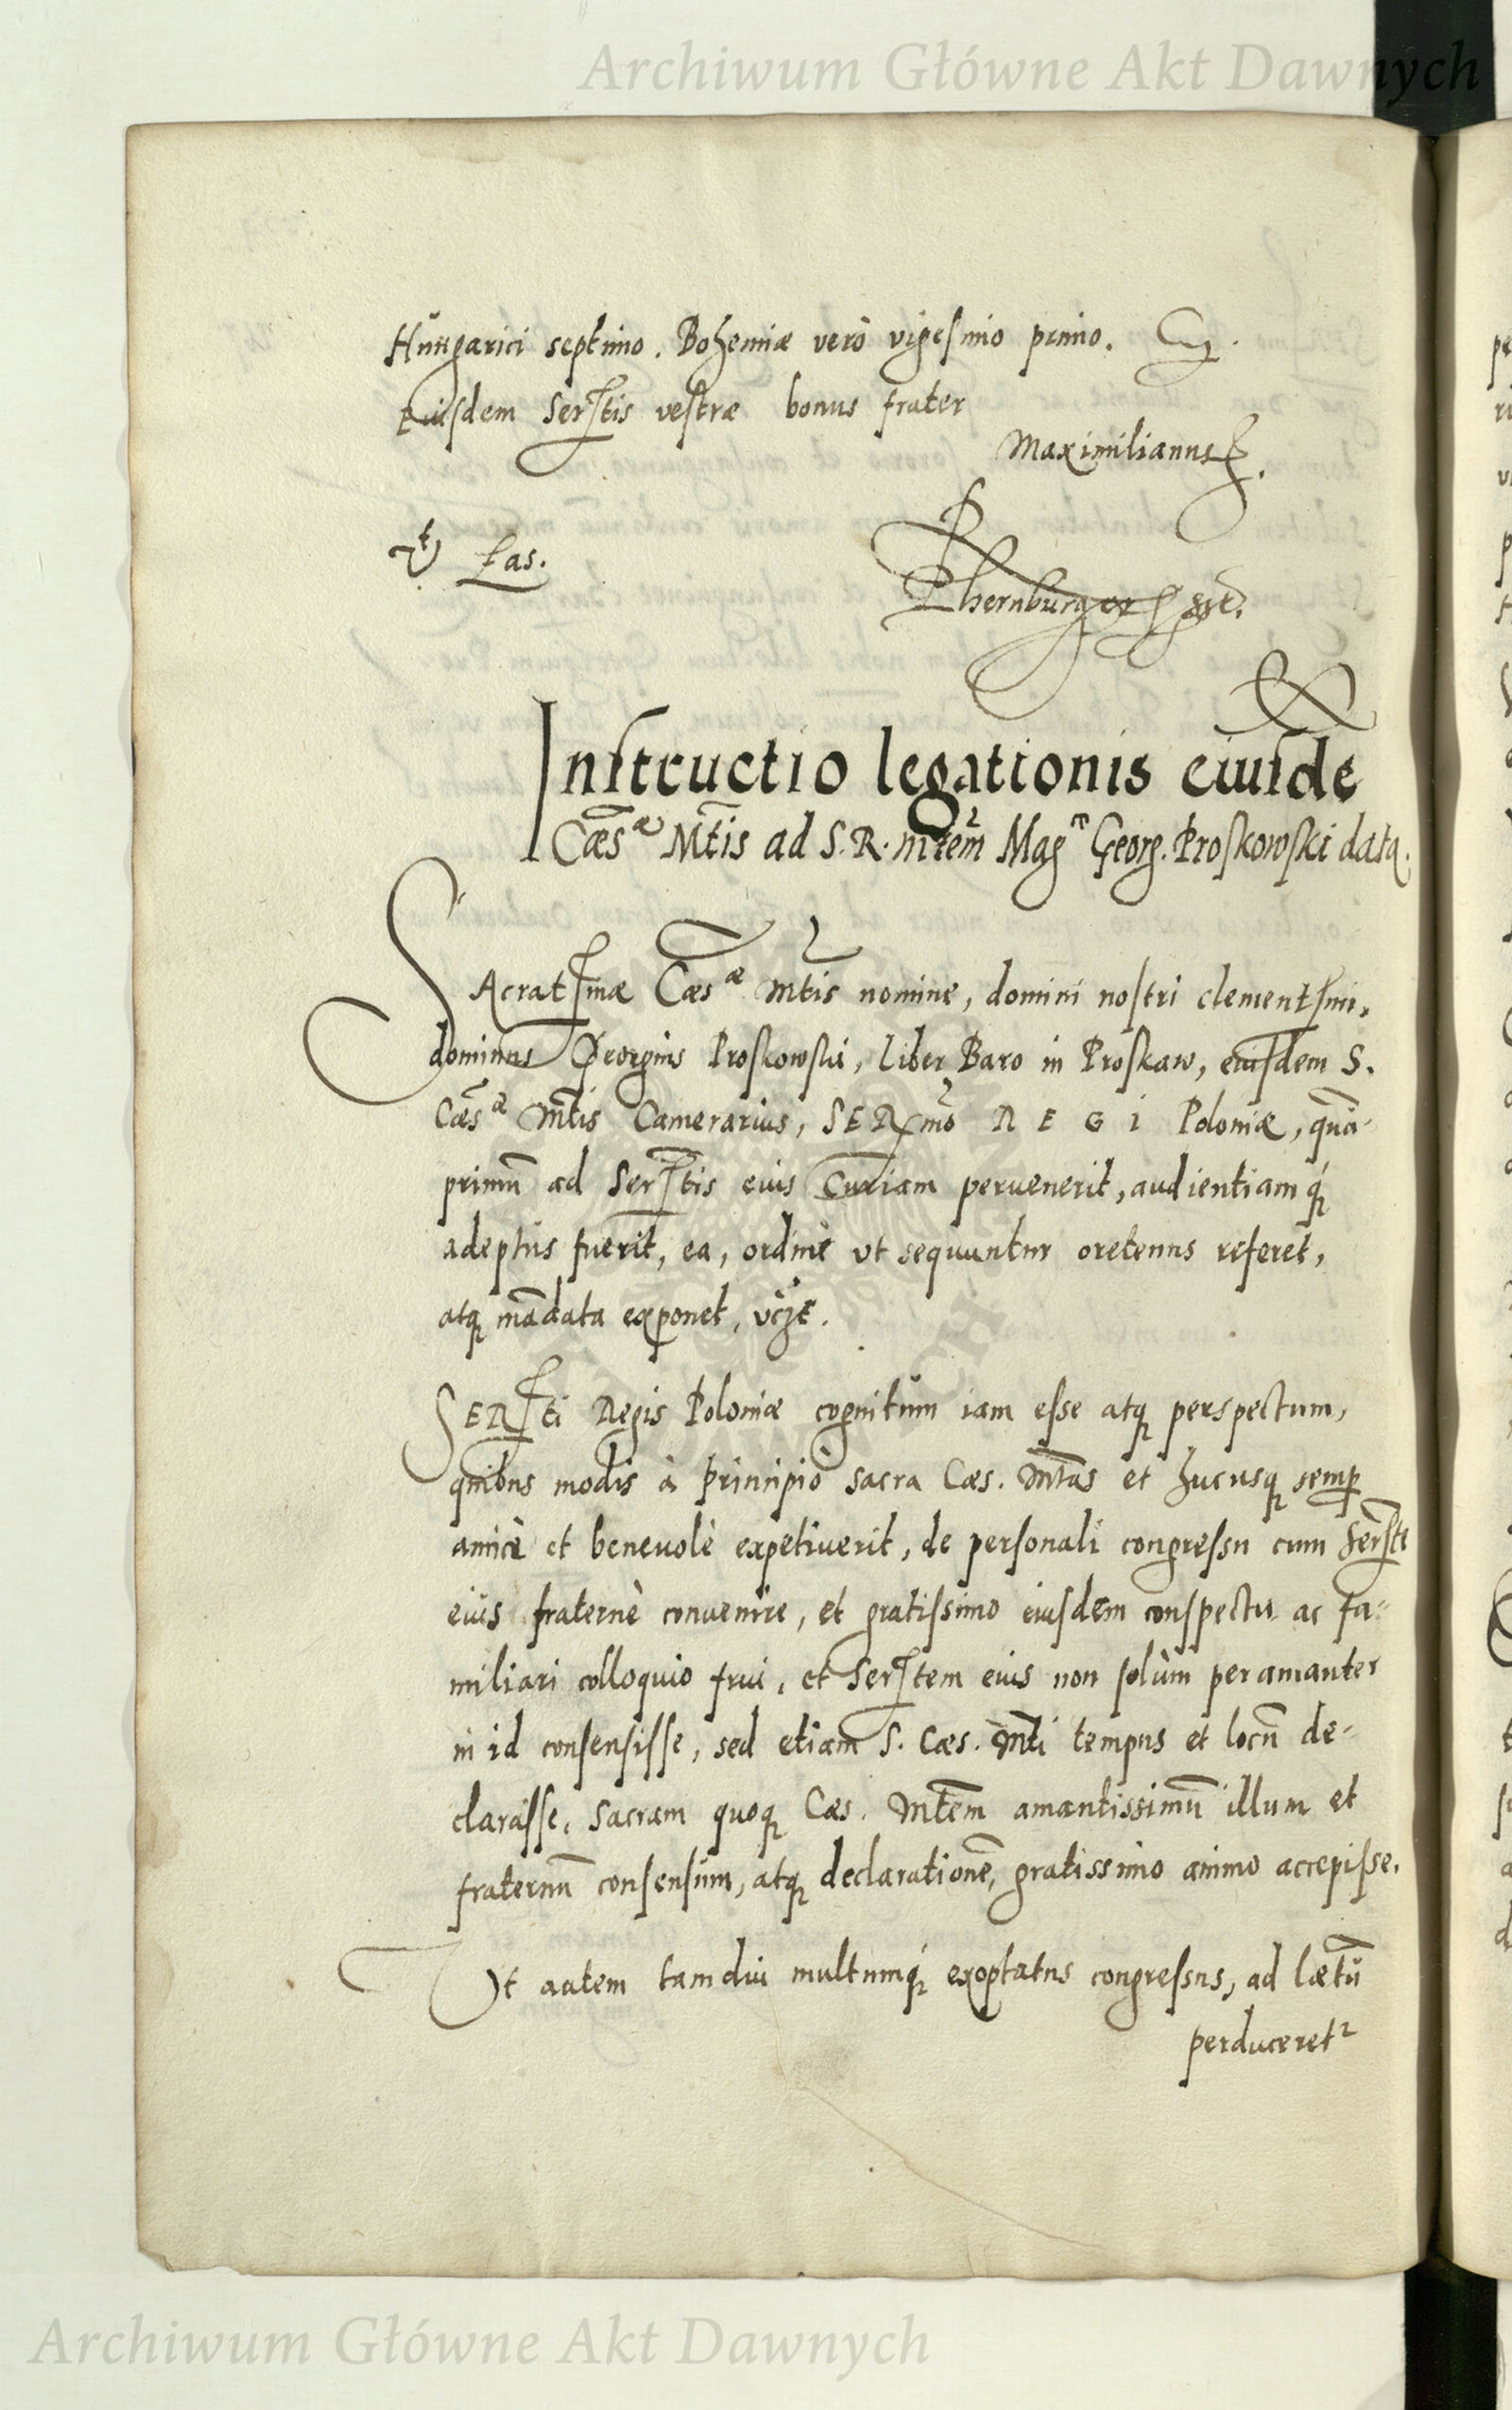 Archiwum Główne Akt Dawnych
Hungarici septimo. Bohemiæ verò vigesimo primo.
Eiusdem Ser^tis vestræ bonus frater
Maximilianus
Las.
Instructio legationis eiusdē
Cæs^æ M̃tis ad S. R. M̃tem Mag^co Georg. Proskowski data.
SAcrat^smæ Cæs^æ M̃tis nomine, domini nostri clement^smi,
dominus Georgius Proskowski, liber Baro in Proskaw, eiusdem S.
Cæs^æ M̃tis Camerarius, SER^mo REGI Poloniæ, quā-
primū ad Ser^tis eius Curiam peruenerit, audientiamq́
adeptus fuerit, ea, ordinè vt sequuntur oretenus referet,
atq mādata exponet, vcżt.
SER^ti Regis Poloniæ cognitum iam esse atq perspectum,
quibus modis à principiò sacra Cæs. M̃tas et hucusq semp
amicè et beneuolè expetiuerit, de personali congressu cum Ser^te
eius fraternè conuenire, et gratissimo eiusdem conspectu ac fa-
miliari colloquio frui, et Ser^tem eius non solùm peramanter
in id consensisse, sed etiam S. Cæs. M̃ti tempus et locū de-
clarasse, Sacram quoq Cæs. M̃tem amantissimū illum et
fraternū consensum, atq declarationē, gratissimo animo accepisse.
Vt autem tamdiu multumq́ exoptatus congressus, ad lætū
perduceret^2
Archiwum Główne Akt Dawnych